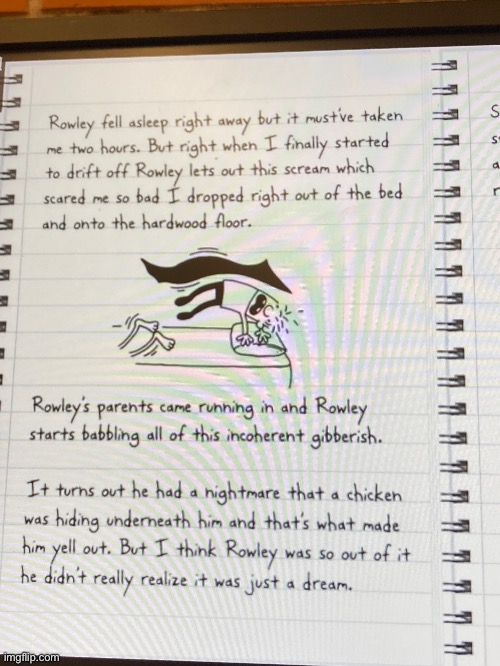 Rowley fell asleep right away but it must've taken
me two hours. But right when I finally started
to drift off Rowley lets out this scream which
scared me so bad I dropped right out of the bed
and onto the hardwood floor.
Rowley's parents came running in and Rowley
starts babbling all of this incoherent gibberish.
It turns out he had a nightmare that a chicken
was hiding underneath him and that's what made
him yell out. But I think Rowley was so out of it
he didn't really realize it was just a dream.
imgflip.com